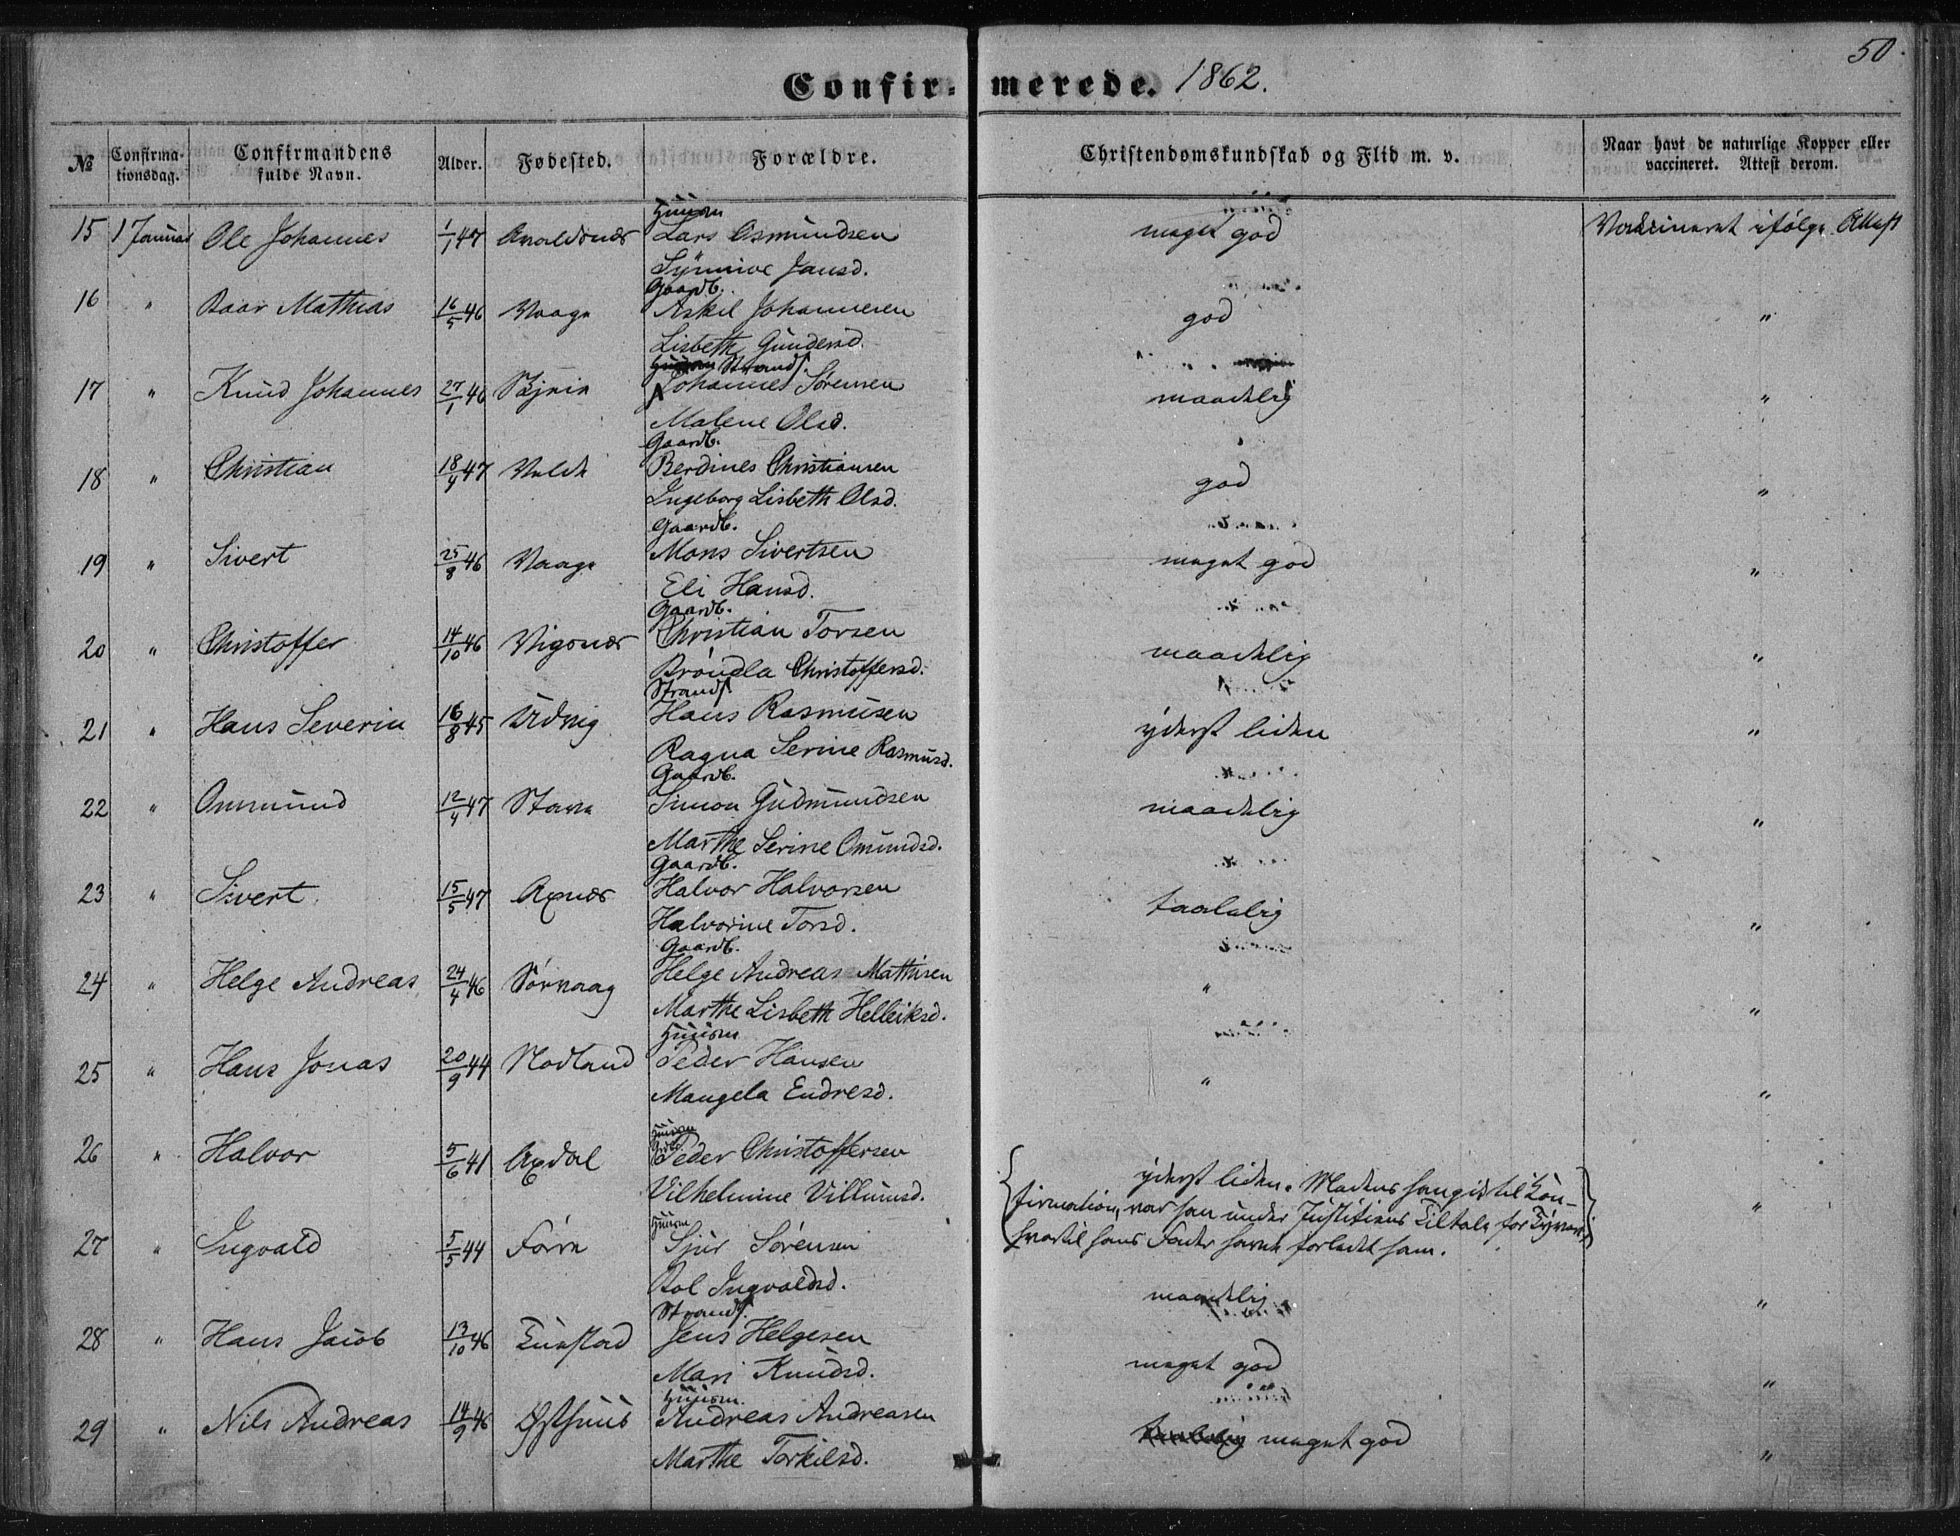 50.
Confir- merede. 1862.
№ Confirma-tionsdag. Confirmandens fulde Navn. Alder. Fødested. Forældre. Christendomskundskab og Flid m. v. Naar havt de naturlige Kopper eller vaccineret. Attest derom.
Huusm
15 1 Januar Ole Johannes 1/1 47 Avaldsnæs Lars Osmundsen meget god Vaccineret ifølge Attest
Synnive Jansd.
Gaardb.
16 " Baar Mathias 16/5 46 Vaage Askel Johannesen god "
Lisbeth Gundersd.
Huusm Strands.
17 " Knud Johannes 27/1 46 Johannes Sørensen maadelig "
Malene Olsd.
Gaardb.
18 " Christian 18/4 47 Valde Berdines Christiansen god "
Ingeborg Lisbeth Olsd.
Gaardb.
19 " Sivert 25/8 46 Vaage Mons Sivertsen meget god "
Eli Hansd.
Gaardb.
20 " Christoffer 14/10 46 Vigsnæs Christian Torsen maadelig "
Brøndla Christoffersd.
Strands.
21 " Hans Severin 16/8 45 Udvig Hans Rasmusen yderst liden "
Ragna Serine Rasmusd.
Gaardb.
22 " Ommund 12/4 47 Stava Simon Gudmundsen maadelig "
Marthe Serine Omundsd.
Gaardb.
23 " Sivert 15/5 47 Axnæs Halvor Halvorsen taalelig "
Halvorine Torsd.
Gaardb.
24 " Helge Andreas 24/4 46 Sørvaag Helge Andreas Mathisen " "
Marthe Lisbeth Helleiksd.
Huusm
25 " Hans Jonas 20/9 44 Nodland Peder Hansen " "
Mangela Endresd.
Huusm
Grdb.
26 " Halvor 5/6 41 Axdal Peder Christoffersen yderst liden. Medens han gik til Con- "
Vilhelmine Villumsd. firmation, var han under Justitiens Tiltale for Tyveri,
Huusm
27 " Ingvald 5/5 44 Førre Sjur Sørensen hvortil hans Fader havde forledet ham.
Bol Ingvaldsd. maadelig "
Strands.
28 " Hans Jacob 13/10 46 Tuastad Jens Helgesen meget god "
Mari Knudsd.
Huusm.
29 " Nils Andreas 14/9 46 Østhuus Andreas Andreasen taalelig meget god "
Marthe Torkilsd.